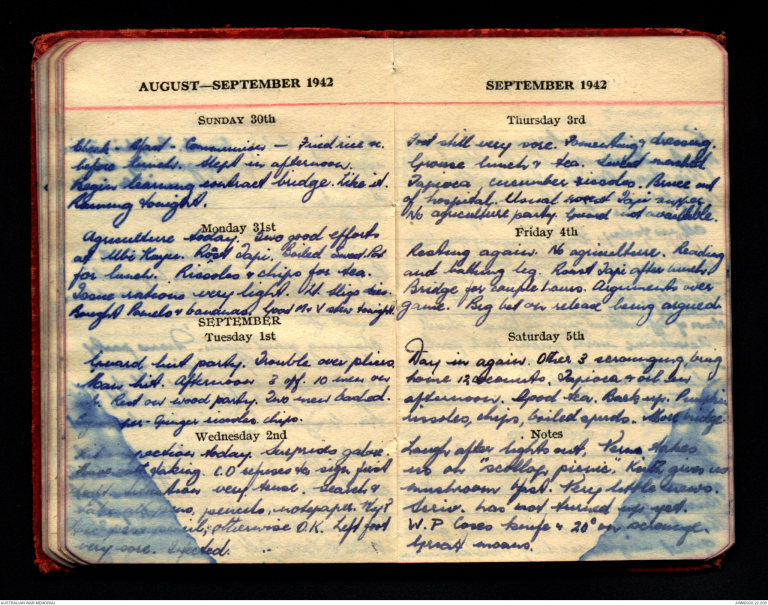 AUGUST—SEPTEMBER 1942
SUNDAY 30th
Church - Communion - Fried rice &c.
before lunch. Slept in afternoon.
Begin learning contract bridge. Like it.
Raining tonight.
Monday 31st
Agriculture today. Two good efforts
at Ubi Kayu. Roast Tapi. Boiled Sweet Pot
for lunch. Rissoles & chips for tea.
Issue rations very light.
Bought Pomelo & bananas. Good show tonight.
SEPTEMBER
Tuesday 1st
Guard hut party. Trouble over pliers.
Man hit. Afternoon 3 off. 10 men on
Rest on wood party. Two men
Ginger rissoles, chips.
Wednesday 2nd
today. Surprises galore.
C.O. refuses to sign just
very tense. Search &
pencils, notepaper.
otherwise O.K. Left foot
very sore. Infected.
SEPTEMBER 1942
Thursday 3rd
Foot still very sore. Fomenting & dressing.
Grouse lunch & tea. Sweet mashed
Tapioca, cucumber rissoles. Bruce out
of hospital. Usual roast Tapi supper.
No agriculture party. Guard not available.
Friday 4th
Resting again. No agriculture. Reading
and bathing leg. Roast Tapi after lunch.
Bridge for couple hours. Arguments over
game. Big bet on release being argued
Saturday 5th
Day in again. Other 3 scrounging bring
home 12 coconuts, Tapioca & oil in
afternoon. Good tea. Back up. Pumpkin
rissoles, chips, boiled spuds. More bridge
Notes
Laugh after lights out, Verna takes
us on "scallop picnic". Keith gives us
mushroom Very little news.
has not turned up yet.
W.P. loses knife & 20" on
Great moans.
AUSTRALIAN WAR MEMORIAL